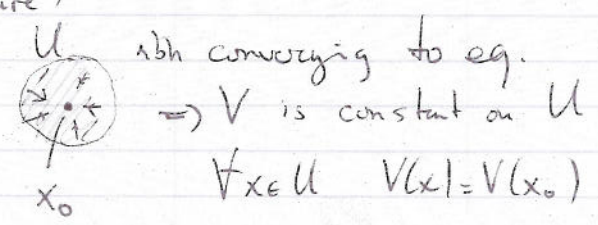 U nbh converging to eq.
=> V is constant on U
∀x∈U V(x)=V(x₀)
x₀